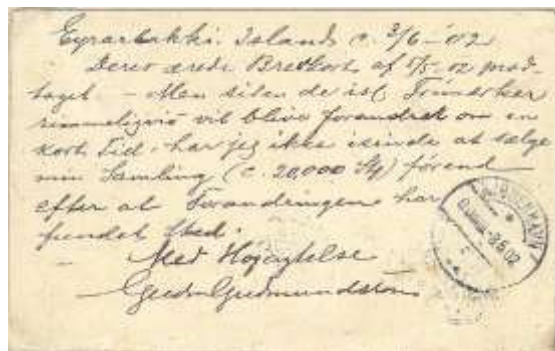 Eyrarbakki. Island d. 3/6 - '02
Deres ærede Brevkort af 5/5 - 02 mod-
taget - Men siden de isl. Frimærker
rimeligvis vil blive forandret om en
kort Tid - har jeg ikke isinde at sælge
min Samling (c. 20,000 Stk) førend
efter at Forandringen har
fundet Sted.
Med Højagtelse
Gudm Gudmundsson
KJØBENHAVN
9.6.02